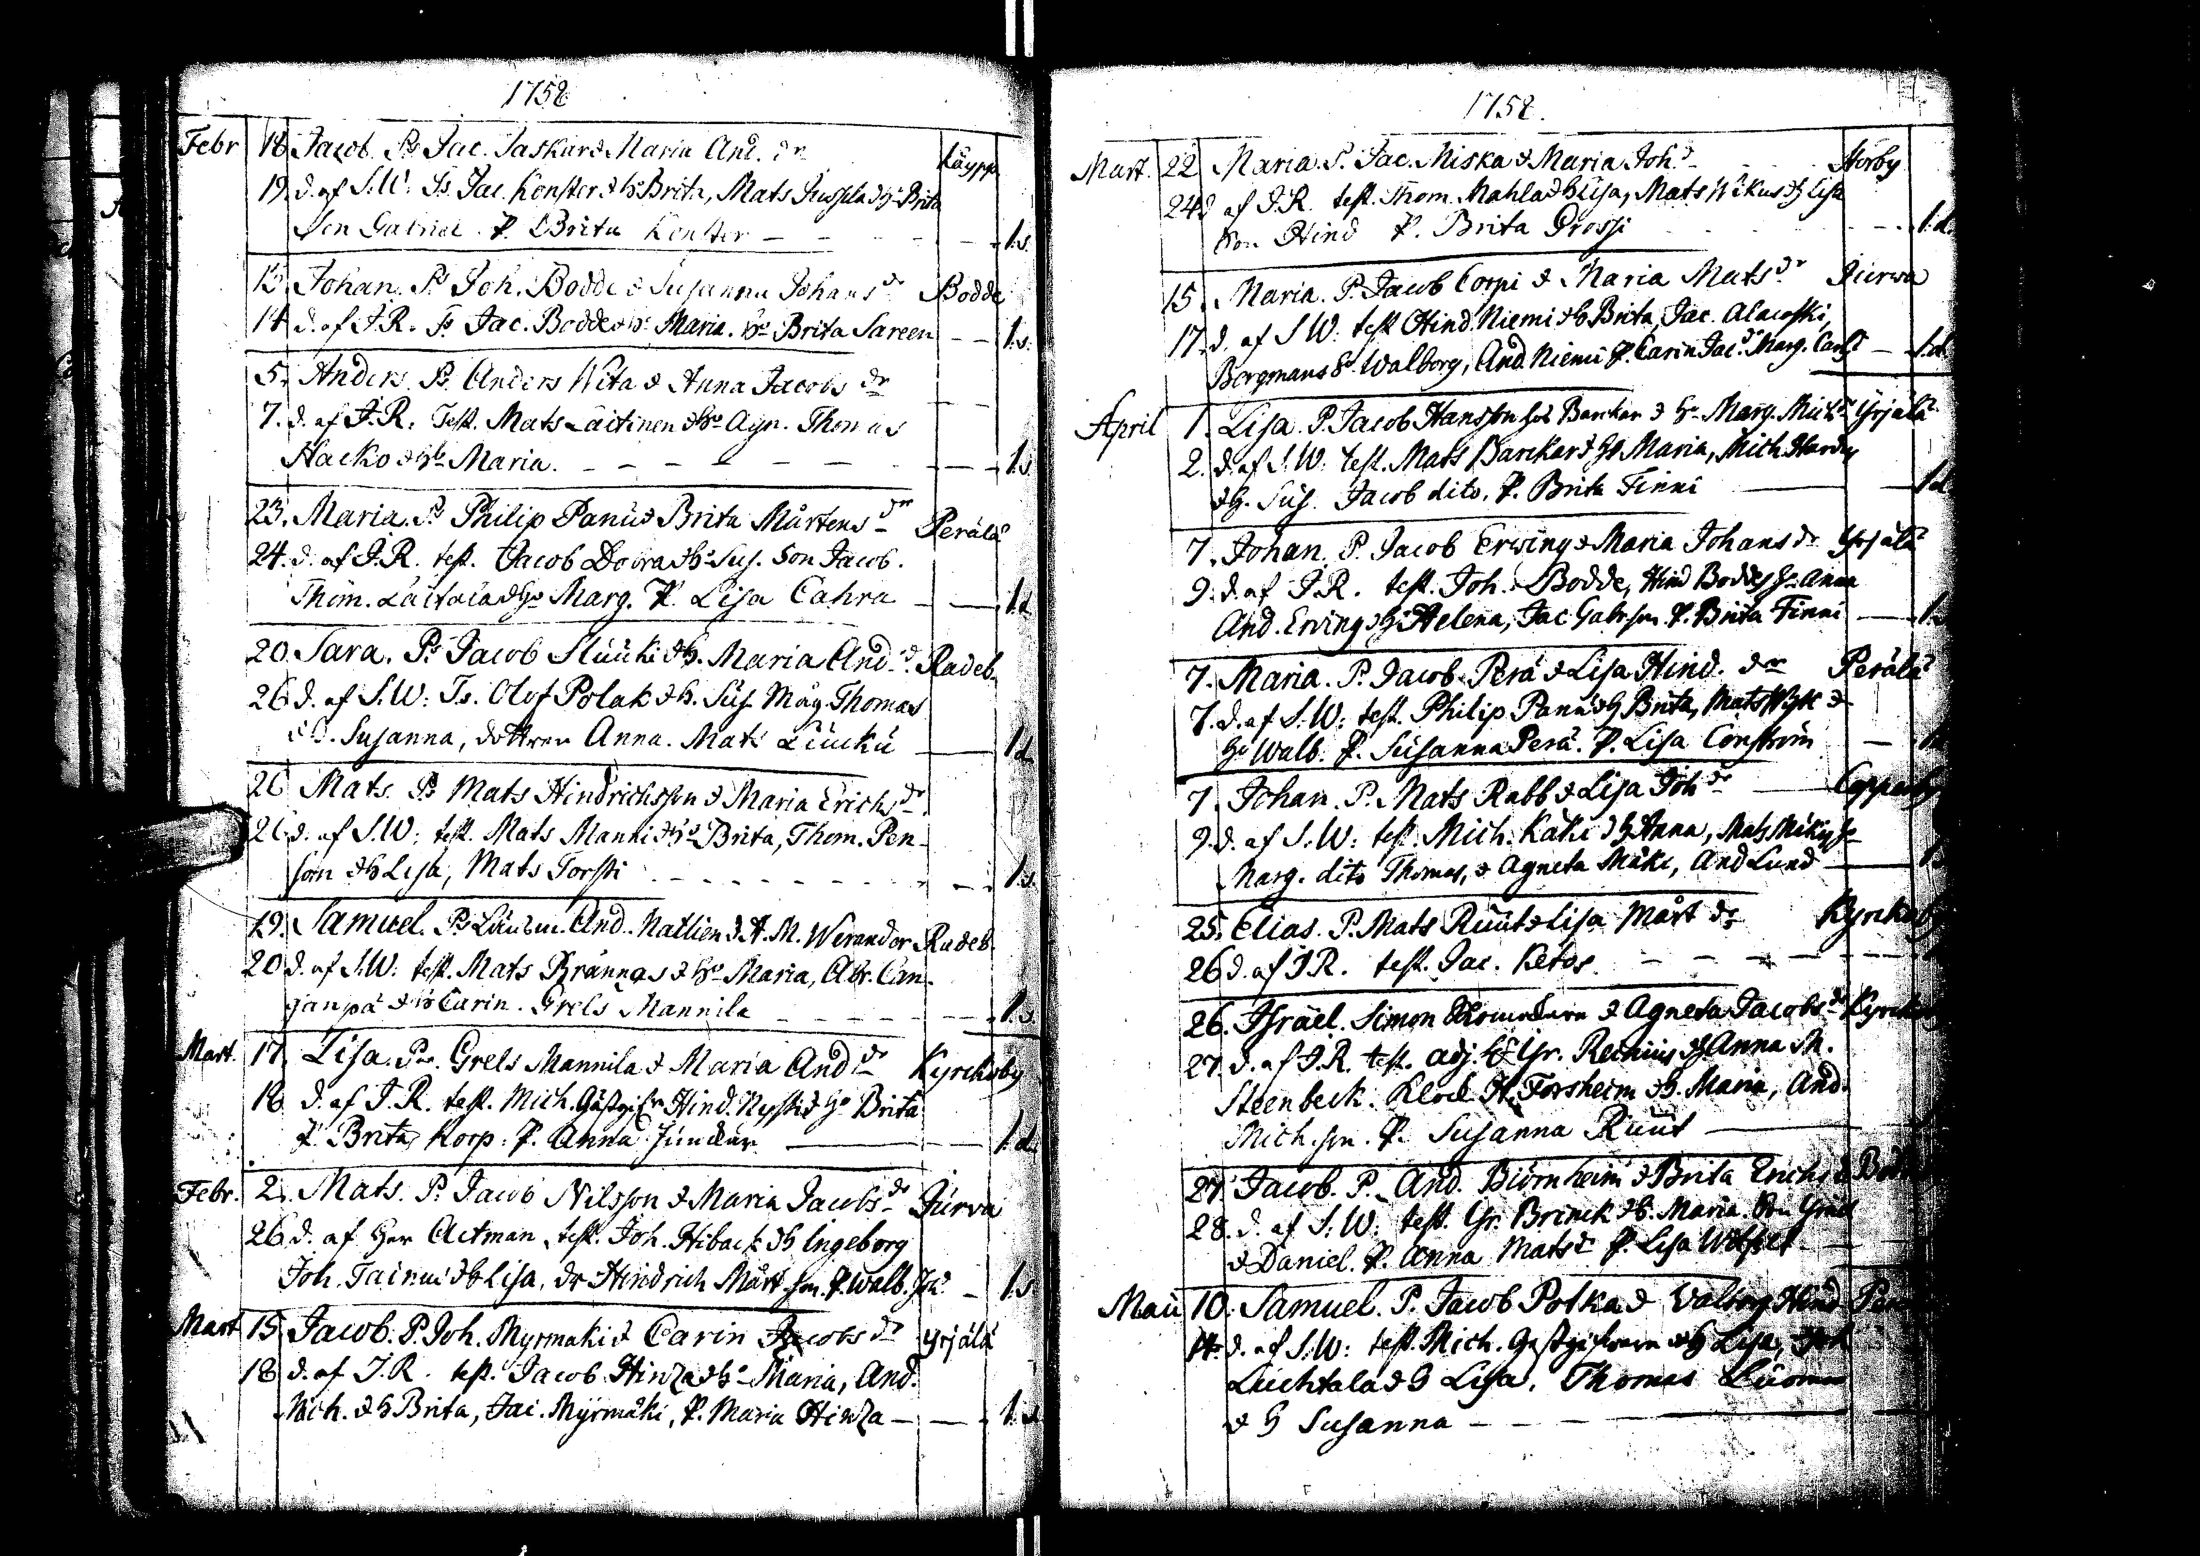 1758
Febr 18. Jacob. Ps Jac. Jaskar & Maria And. dr Käypp
19. d. af S.W. Ts. Jac. Konster & hs Brita, Mats & hs Brita
Son Gabriel. P. Brita Konster — 1.s.
13. Johan. Ps Joh. Bodde & Susanna Johans dr Bodde
14 d. af J.R. Ts Jac. Bodde & hs Maria. hs Brita Sareen — 1.s.
5. Anders. Ps. Anders Wita & Anna Jacobs dr
7. d. af J.R. Test. Mats Laitinen & hs Agn. Thomas
Hacko & hs Maria. — 1.s
23. Maria. Ps Philip Panu & Brita Mårtens dr Perälä
24. d. af J.R. test. Jacob Dobra & hs Sus. Son Jacob.
Thom. Laitala & hs Marg. P. Lisa Cahra — 1.d.
20. Sara. Ps Jacob Sluuki & h. Maria And. d. Radeb.
26 d. af S.W: Ts. Olof Polak & h. Sus. Måg Thomas
Susanna, dottren Anna. Mats Luucku — 1.d.
26 Mats. Ps Mats Hindrichsson & Maria Erichs dr
26 d. af S.W: test. Mats Manni & hs Brita, Thom. Pen-
som & h Lisa, Mats Torsti — 1.s.
19. Samuel. Ps And. Nallien & A.M. Werandor Radeb.
20 d. af S.W: test. Mats Brännas & hs Maria, Abr. Can-
ganpä & hs Carin. Grels Mannila — 1.s.
Mart. 17. Lisa. Ps Grels Mannila & Maria And dr Kyrckoby
18 d. af J.R. test. Mich. Gästgifvr Hind. Nyssti & hs Brita
P. Brita Korp: P. Anna Junckar — 1.d.
Febr. 2. Mats. P. Jacob Nilsson & Maria Jacobs dr Jurva
26 d. af Herr Actman, test. Joh. Hiback & h Ingeborg
Joh. Tainui & h Lisa, dr Hindrich Mårt.son. P. Walb. Joh. — 1.s
Mart 15 Jacob. P. Joh. Myrmaki & Carin Jacobs dr Yrjälä
18 d. af J.R. test. Jacob Hinza & hs Maria, And.
Mich. & h Brita, Jac. Myrmäki, P. Maria Hinza — 1.s
1758.
Mart. 22 Maria. P. Jac. Miska & Maria Joh. d. Norby
24 d af J.R. test. Thom. Mahla & h Lisa, Mats Wikus & h Lisa
Son Hind P. Brita Prossi — 1.d.
15. Maria. P. Jacob Corpi & Maria Mats dr Jurwa
17. d. af S.W. test Hind. Niemi & h Brita, Jac. Alacoski,
Bergmans h. Walborg, And Niemi P. Carin Jac. dr Marg. — 1.d.
April 1. Lisa. P. Jacob Hansson Barckar & h. Marg. Mich. Yrjälä
2. d. af S.W. test. Mats Barckar & h Maria, Mich. Harden
& h. Sus. Jacob dito. P. Brita Finni — 1.d.
7. Johan. P. Jacob Erving & Maria Johans dr Yrjälä
9. d. af J.R. test. Joh. Bodde, Hind Bodde h. Anna
And. Erving & h Helena, Jac. Gabr.son. P. Brita Finni — 1.s
7. Maria. P. Jacob Perä & Lisa Hind. dr Perälä
7. d. af S.W: test. Philip Panu & h Brita, Mats Wyk &
hs Walb. P. Susanna Perä. P. Lisa Conström —
7. Johan. P. Mats Rabb & Lisa Joh dr
9. d. af S.W: test. Mich. Käki & h Anna, Mats Mäki h
Marg. dito Thomas, & Agneta Mäki, And Lund —
25. Elias. P. Mats Ruut & Lisa Mårt dr Kyrckoby
26 d. af J.R. test. Jac. Ketos. —
26. Israel. Simon & Agneta Jacobs dr
27. d. af J.R. test. adj. Gr. & h Anna M.
Steenbeck. Klock. H. Forsheim & h. Maria, And.
Mich. son. P. Susanna Ruut —
27. Jacob. P. And. Biörnheim & Brita Erichs d
28. d. af S.W: test. Gr. Brinck & h. Maria.
& Daniel. P. Anna Mats dr P. Lisa —
Maii 10. Samuel. P. Jacob Polka & Walborg Hind
d. af S.W: test. Mich. Gästgifvaren & h Lisa,
Luchtala & h Lisa. Thomas Luoma
& h Susanna —